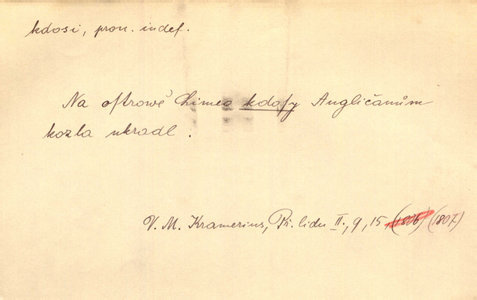 kdosi, pron. indef.
Na oſtrowě Chimco kdoſy Angličanům
kozla ukradl.
V. M. Kramerius, Př. lidu II., 9, 15 (1806) (1807)